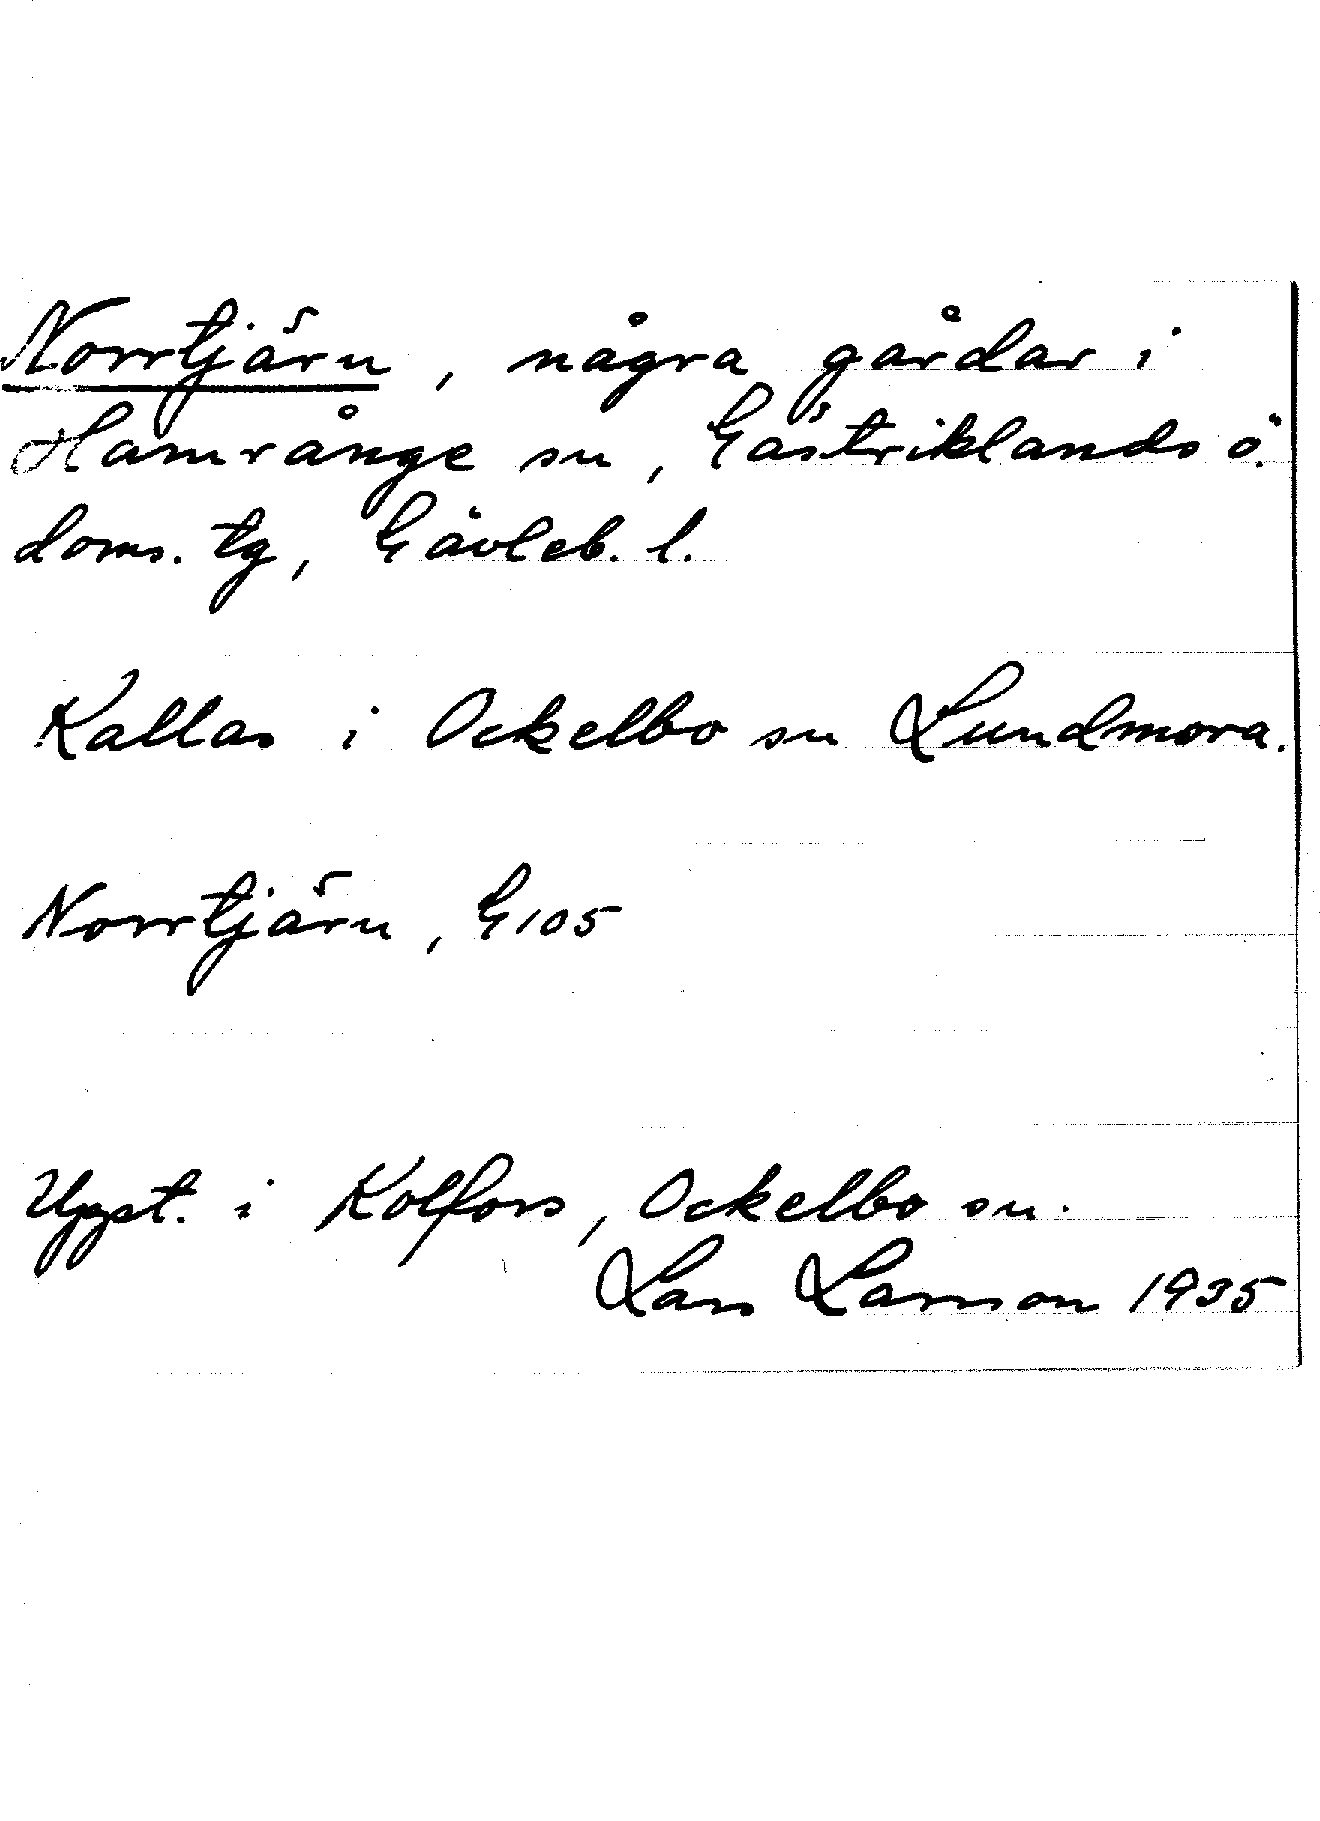 Norrtjärn, några gårdar i
Hamrånge sn, Gästriklands ö.
doms. tg, Gävleb. l.
Kallas i Ockelbo sn Lundmora.
Norrtjärn, G105
Uppt. i Kolfors, Ockelbo sn.
Lars Larsson 1935